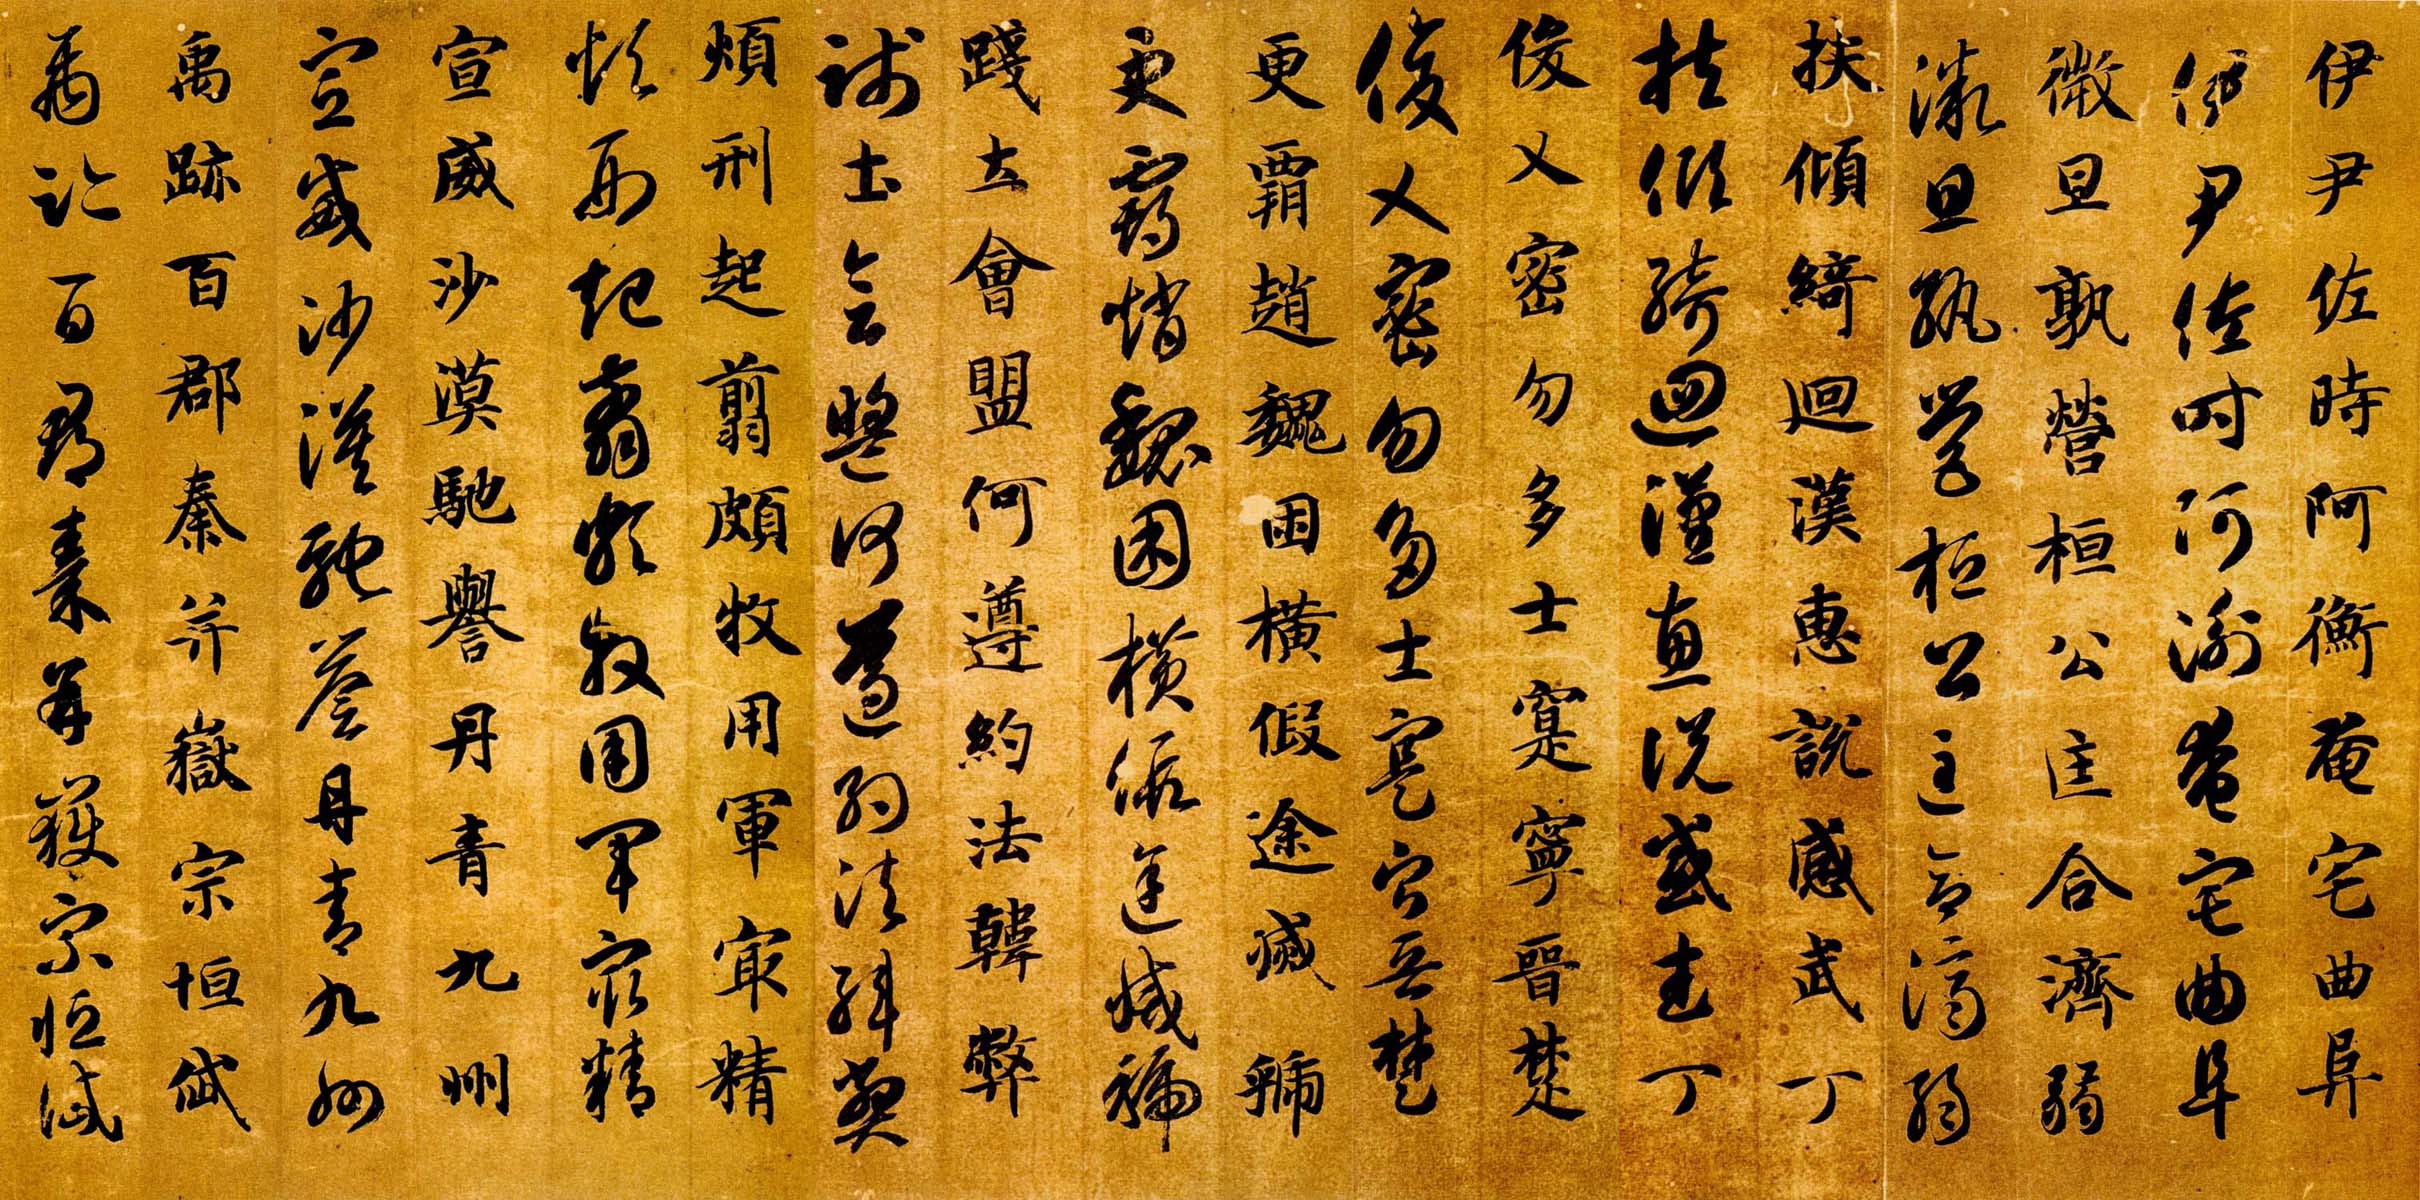 伊尹佐時阿衡奄宅曲阜
伊尹佐時阿衡奄宅曲阜
微旦孰營桓公匡合濟弱
微旦孰營桓公匡合濟弱
扶傾綺迴漢惠說感武丁
扶傾綺迴漢惠說感武丁
俊乂密勿多士寔寧晉楚
俊乂密勿多士寔寧晉楚
更覇趙魏困橫假途滅虢
更覇趙魏困橫假途滅虢
踐土會盟何遵約法韓弊
踐土會盟何遵約法韓弊
煩刑起翦頗牧用軍冣精
煩刑起翦頗牧用軍冣精
宣威沙漠馳譽丹青九州
宣威沙漠馳譽丹青九州
禹跡百郡秦并嶽宗恒岱
禹跡百郡秦并嶽宗恒岱